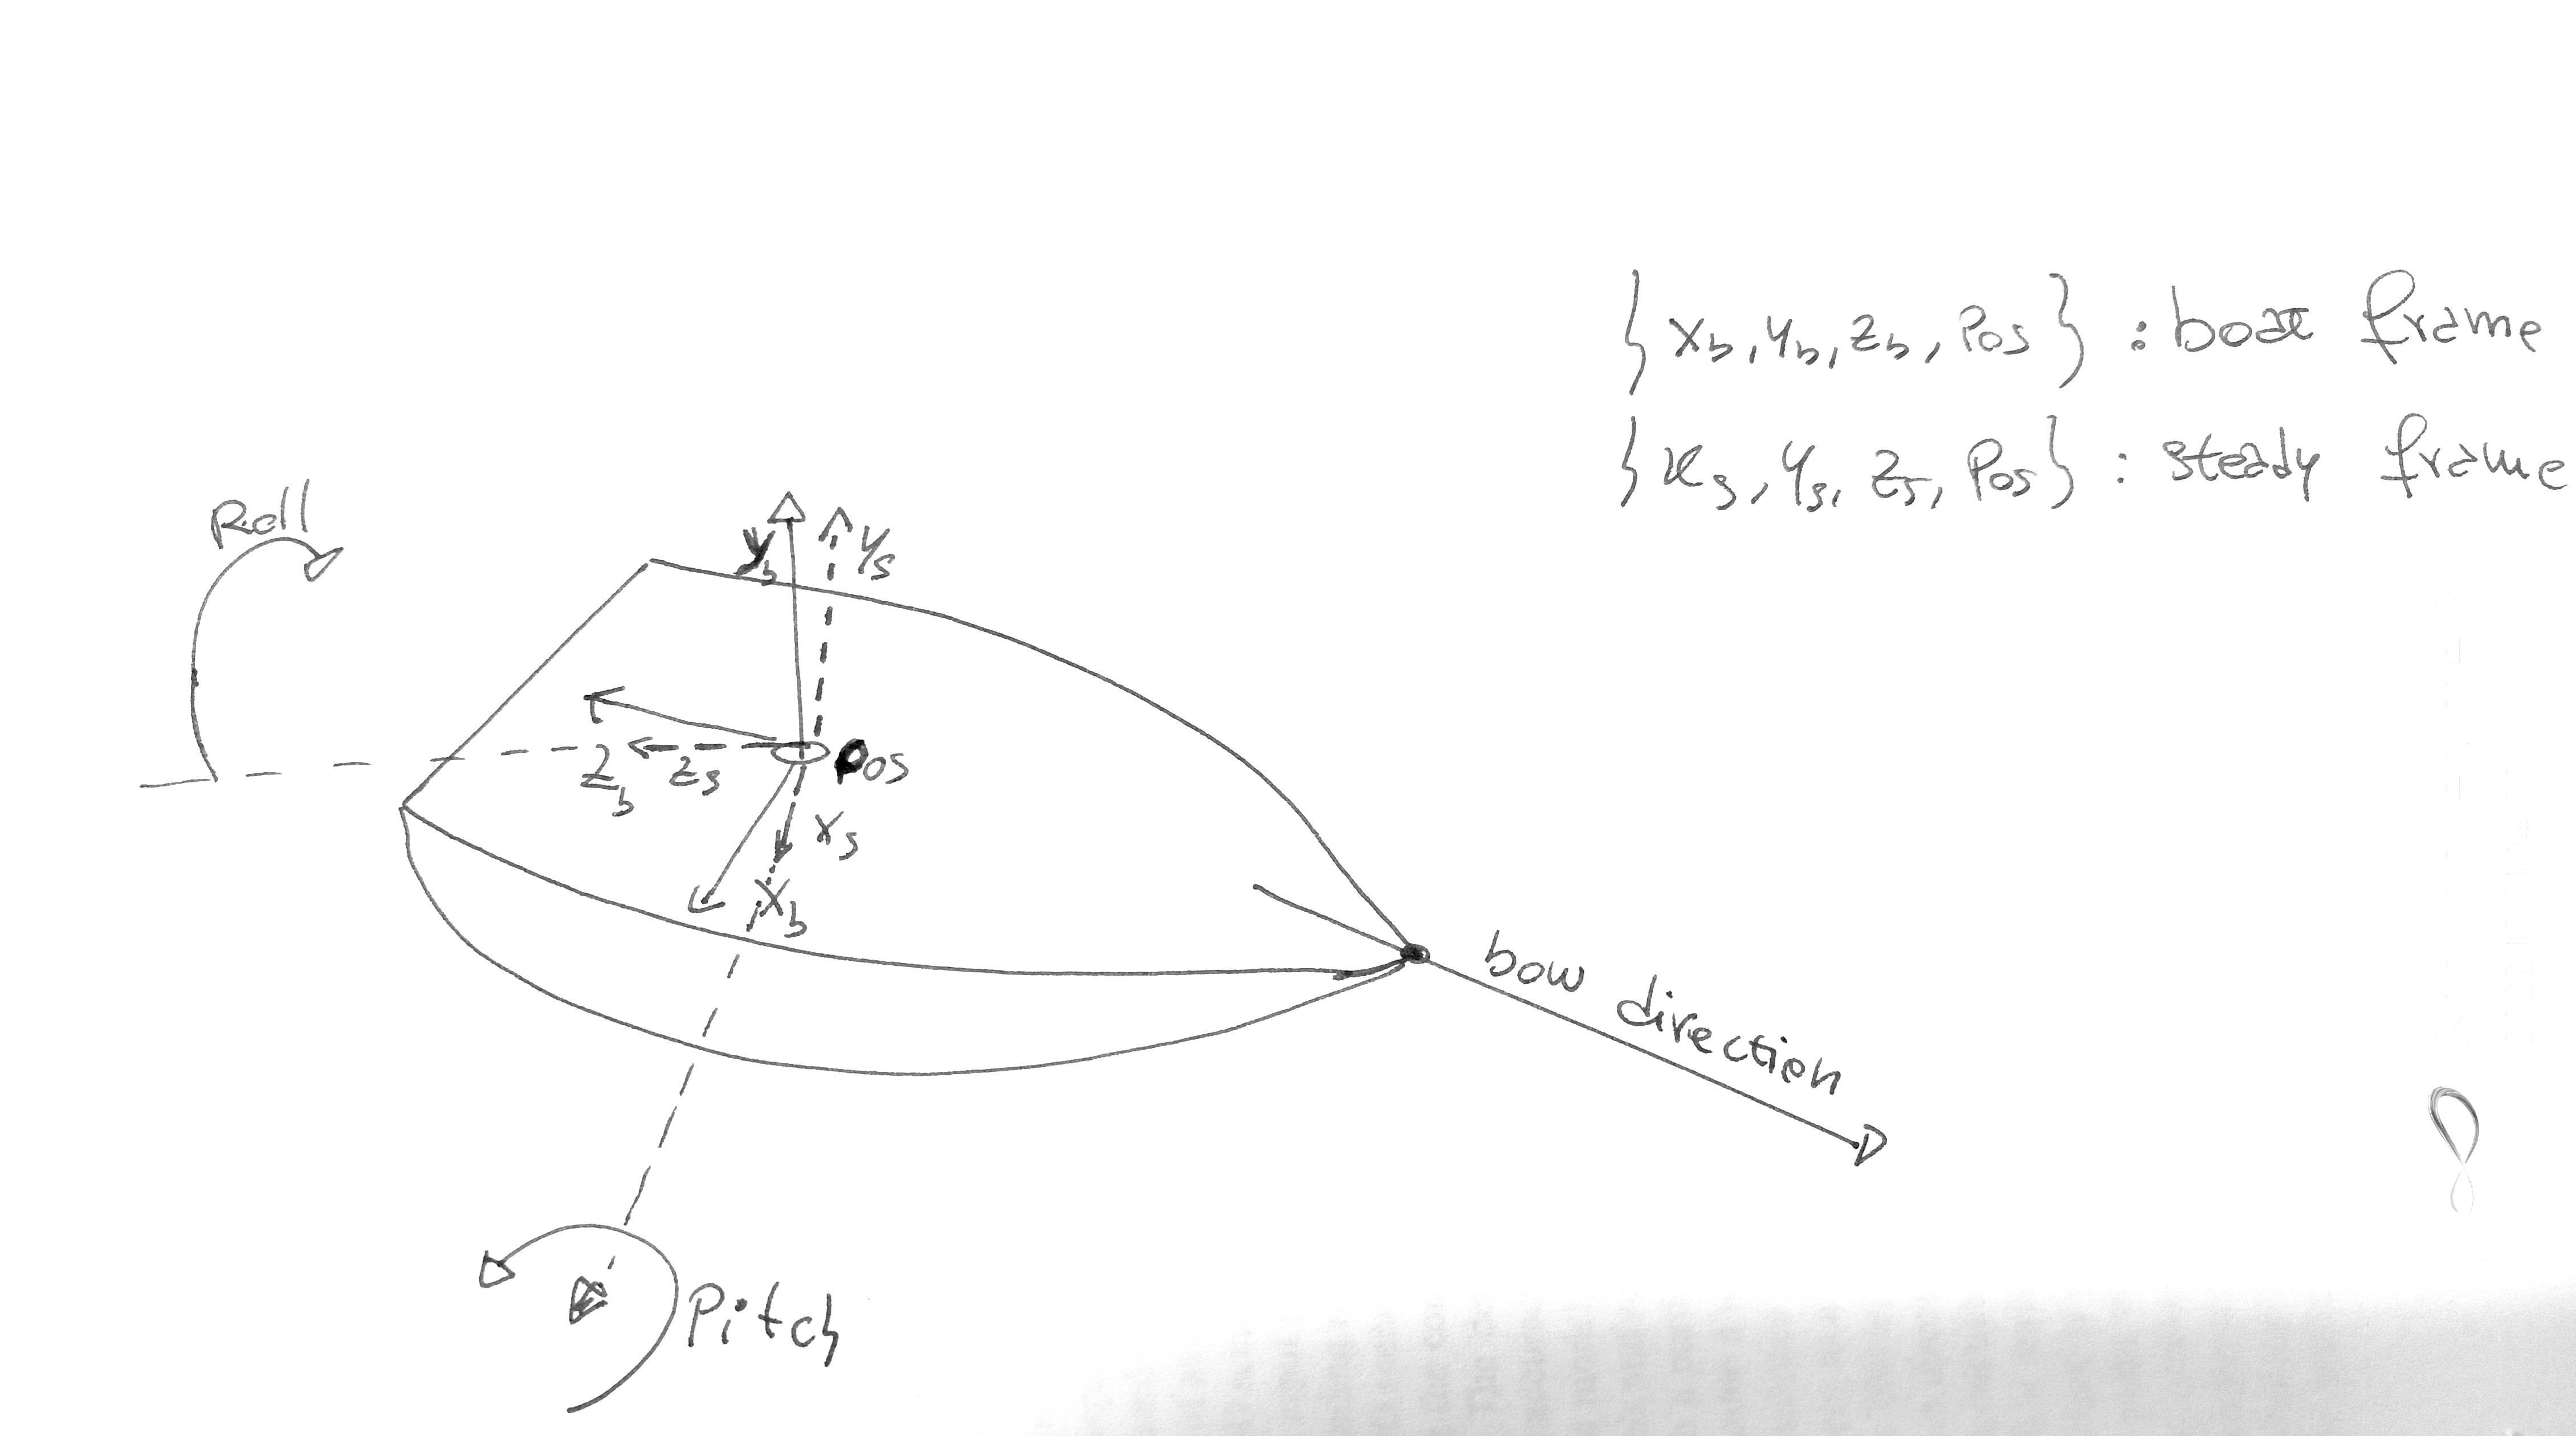 { xb, yb, zb, Pos } : boat frame
{ xs, ys, zs, Pos } : steady frame
Roll
yb
ys
zb
zs
Pos
xs
xb
bow direction
Pitch